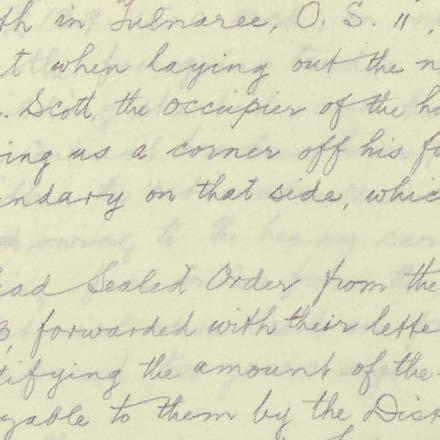 th in Tulnaree, O. S. 11,
t when laying out the n
. Scott, the occupier of the h
ing us a corner off his f
ndary on that side, whic
owing to the heavy
ead Sealed Order from the
3, forwarded with their lette
tifying the amount of the
yable to them by the Dist